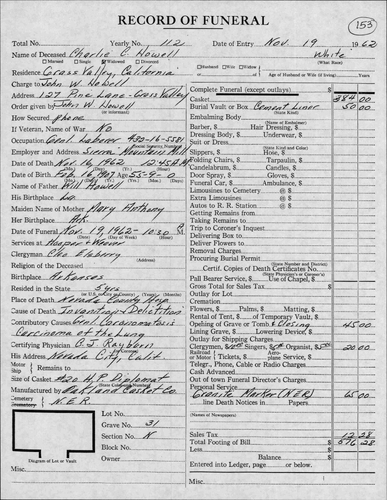 RECORD OF FUNERAL
153
Total No. Yearly No. 112 Date of Entry Nov. 19 1962
Name of Deceased Charlie C. Howell White
Married Single Widowed Divorced Husband Wife Widow (What Race)
Residence Grass Valley, California of Age of Husband or Wife (if living) Years
Charge to John W. Howell
Address 127 Pine Lane - Grass Valley
Order given by John W. Howell
How Secured phone
If Veteran, Name of War No
Occupation Gen. Laborer 430-16-5581
Employer and Address Sierra Mountain Mills
Date of Death Nov. 16, 1962 12:45 A.M.
Date of Birth Feb. 16, 1907 55-9-0
Name of Father Will Howell
His Birthplace
Maiden Name of Mother Mary Anthony
Her Birthplace Ark.
Date of Funeral Nov. 19, 1962 - 10:30
Services at Hooper + Weaver
Clergyman Cleo Elsberry
Religion of the Deceased
Birthplace Arkansas
Resided in the State 5 yrs
Place of Death Nevada County Hosp.
Cause of Death Inanition + Debilitation
Contributory Causes Gen. Carcinomatosis
Carcinoma of the Lung
Certifying Physician C. J. Rayborn
His Address Nevada City, Calif.
Motor Ship Remains to
Size of Casket #20 H.P. Diplomat
Manufactured by Oakland Casket Co.
Cemetery Crematory N.E.R.
Lot No.
Grave No. 31
Section No. N
Block No.
Owner
Diagram of Lot or Vault
Misc.
Complete Funeral (except outlays) $
Casket 384.00
Burial Vault or Box Cement Liner 50.00
(State Kind)
Embalming Body
(Name of Embalmer)
Barber, $ Hair Dressing, $
Dressing Body, $ Underwear, $
Suit or Dress
(State Kind and Color)
Slippers, $ Hose, $
Folding Chairs, $ Tarpaulin, $
Candelabrum, $ Candles, $
Door Spray, $ Gloves, $
Funeral Car, $ Ambulance, $
Limousines to Cemetery @ $
Extra Limousines @ $
Autos to R. R. Station @ $
Getting Remains from
Taking Remains to
Trip to Coroner's Inquest
Delivering Box to
Deliver Flowers to
Removal Charges
Procuring Burial Permit
(State Number and District)
Certif. Copies of Death Certificates No.
Pall Bearer Service, $ Use of Chapel, $
Gross Total for Sales Tax $
Outlay for Lot
Cremation
Flowers, $ Palms, $ Matting, $
Rental of Tent, $ of Temporary Vault, $
Opening of Grave or Tomb + Closing 45.00
Lining Grave, $ Lowering Device, $
Outlay for Shipping Charges
Clergymen, $ Singers, $ Organist, $ 20.00
Railroad or Motor Tickets, $ Aeroplane Service, $
Telegr., Phone, Cable or Radio Charges
Cash Advanced
Out of town Funeral Director's Charges
Personal Service
Granite Marker (N.E.R) 65.00
line Death Notices in Papers
(Names of Newspapers)
Sales Tax 12.28
Total Footing of Bill $ 576.28
Less
Balance $
Entered into Ledger, page or below.
Misc.